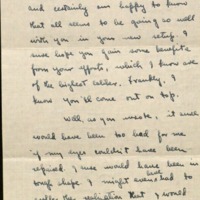 and certainly am happy to know
that all seems to be going so well
with you in your new setup. I
sure hope you gain some benefits
from your efforts, which I know are
of the highest caliber. Frankly, I
know you'll come out on top.
Well, as you wrote, it sure
would have been too bad for me
if my eyes couldn't have been
repaired. I sure would have been in
tough shape. I might even have had to
suffer the realization that I would